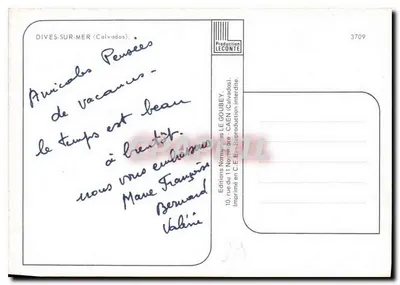 DIVES-SUR-MER (Calvados)
Production
LECONTE
3709
Amicales Pensées
de vacances -
le temps est beau
à bientôt.
nous vous embrassons
Marie Françoise
Bernard
Valérie
Editions LE GOUBEY.
10, rue du 11 Novembre - CAEN (Calvados).
Imprimé en C.E. reproduction interdite.